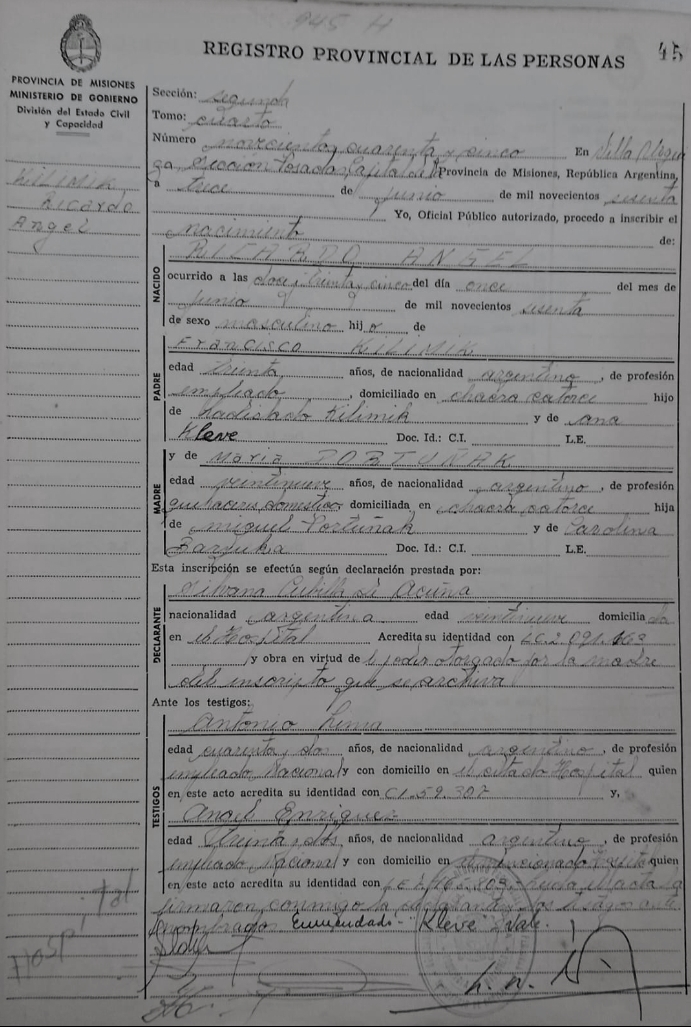 945 H
45
REGISTRO PROVINCIAL DE LAS PERSONAS
PROVINCIA DE MISIONES
MINISTERIO DE GOBIERNO
División del Estado Civil
y Capacidad
KILIMIK
Ricardo
Angel
Hospital
Sección: segunda
Tomo: cuarto
Número novecientos cuarenta y cinco En Villa
Sección Posadas Capital de la Provincia de Misiones, República Argentina,
a trece de junio de mil novecientos sesenta
Yo, Oficial Público autorizado, procedo a inscribir el
nacimiento de:
NACIDO
RICARDO ANGEL
ocurrido a las doce y treinta y cinco del día once del mes de
junio de mil novecientos sesenta
de sexo masculino hijo de
PADRE
Francisco KILIMIK
edad treinta años, de nacionalidad argentino, de profesión
empleado, domiciliado en chacra catorce hijo
de Ladislado Kilimik y de Ana
Kleve Doc. Id.: C.I. L.E.
MADRE
y de Maria PORTUNAK
edad veintinueve años, de nacionalidad argentina, de profesión
quehaceres domesticos, domiciliada en chacra catorce hija
de Miguel Portuñak y de Carolina
Doc. Id.: C.I. L.E.
Esta inscripción se efectúa según declaración prestada por:
DECLARANTE
Silvana Cubilla de Acuña
nacionalidad argentina edad veintinueve domiciliada
en el Hospital Acredita su identidad con
y obra en virtud de el poder otorgado por la madre
del inscripto que se archiva
Ante los testigos:
TESTIGOS
Antonio Lima
edad cuarenta y dos años, de nacionalidad argentino, de profesión
empleado Nacional y con domicilio en el citado Hospital quien
en este acto acredita su identidad con C.I. 59.307 y,
Angel Enriquez
edad treinta y dos años, de nacionalidad argentino, de profesión
empleado Nacional y con domicilio en el mencionado Hospital quien
en este acto acredita su identidad con Leida el acta la
firmaron conmigo la declarante y los testigos ante
nombrados Enmendado "Kleve" Vale.